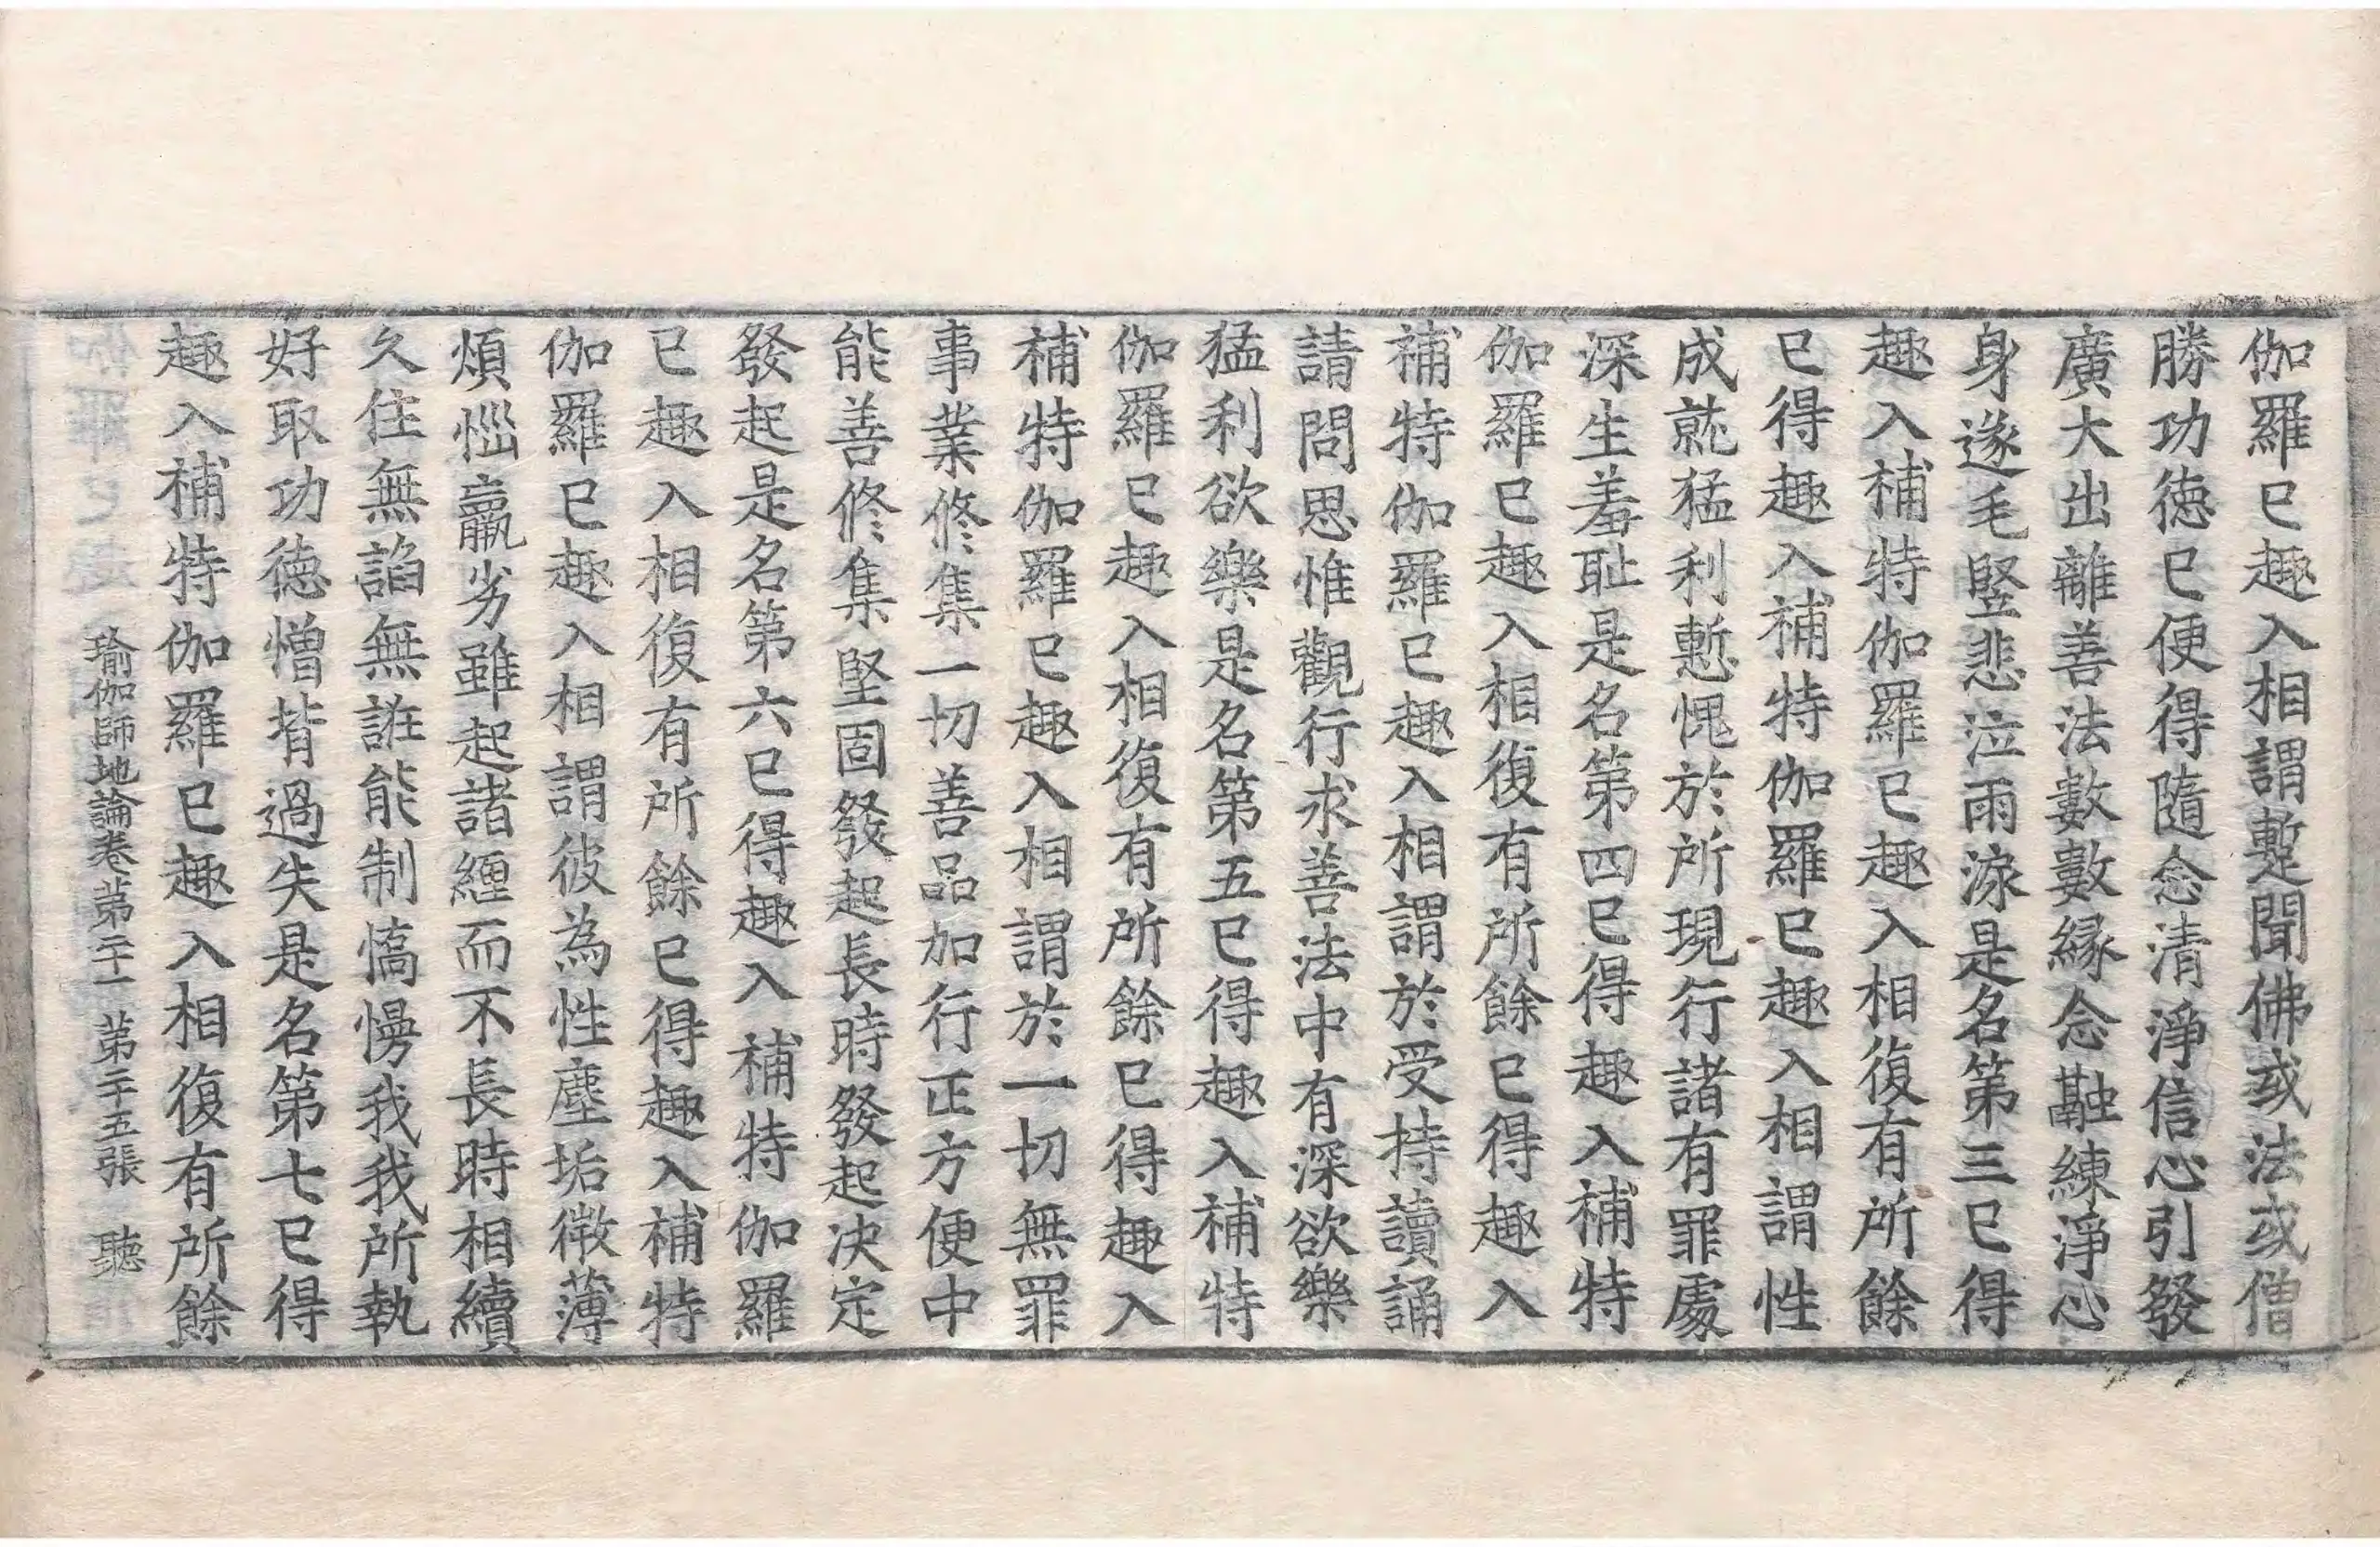 伽羅已趣入相謂蹔聞佛或法或僧
勝功德已便得隨念清淨信心引發
廣大出離善法數數緣念融練淨心
身遂毛竪悲泣雨淚是名第三已得
趣入補特伽羅已趣入相復有所餘
已得趣入補特伽羅已趣入相謂性
成就猛利慙愧於所現行諸有罪處
深生羞恥是名第四已得趣入補特
伽羅已趣入相復有所餘已得趣入
補特伽羅已趣入相謂於受持讀誦
請問思惟觀行求善法中有深欲樂
猛利欲樂是名第五已得趣入補特
伽羅已趣入相復有所餘已得趣入
補特伽羅已趣入相謂於一切無罪
事業修集一切善品加行正方便中
能善修集堅固發起長時發起決定
發起是名第六已得趣入補特伽羅
已趣入相復有所餘已得趣入補特
伽羅已趣入相謂彼為性塵垢微薄
煩惱羸劣雖起諸纏而不長時相續
久住無諂無誑能制憍慢我我所執
好取功德憎背過失是名第七已得
趣入補特伽羅已趣入相復有所餘
瑜伽師地論卷第二十一 第二十五張 聽